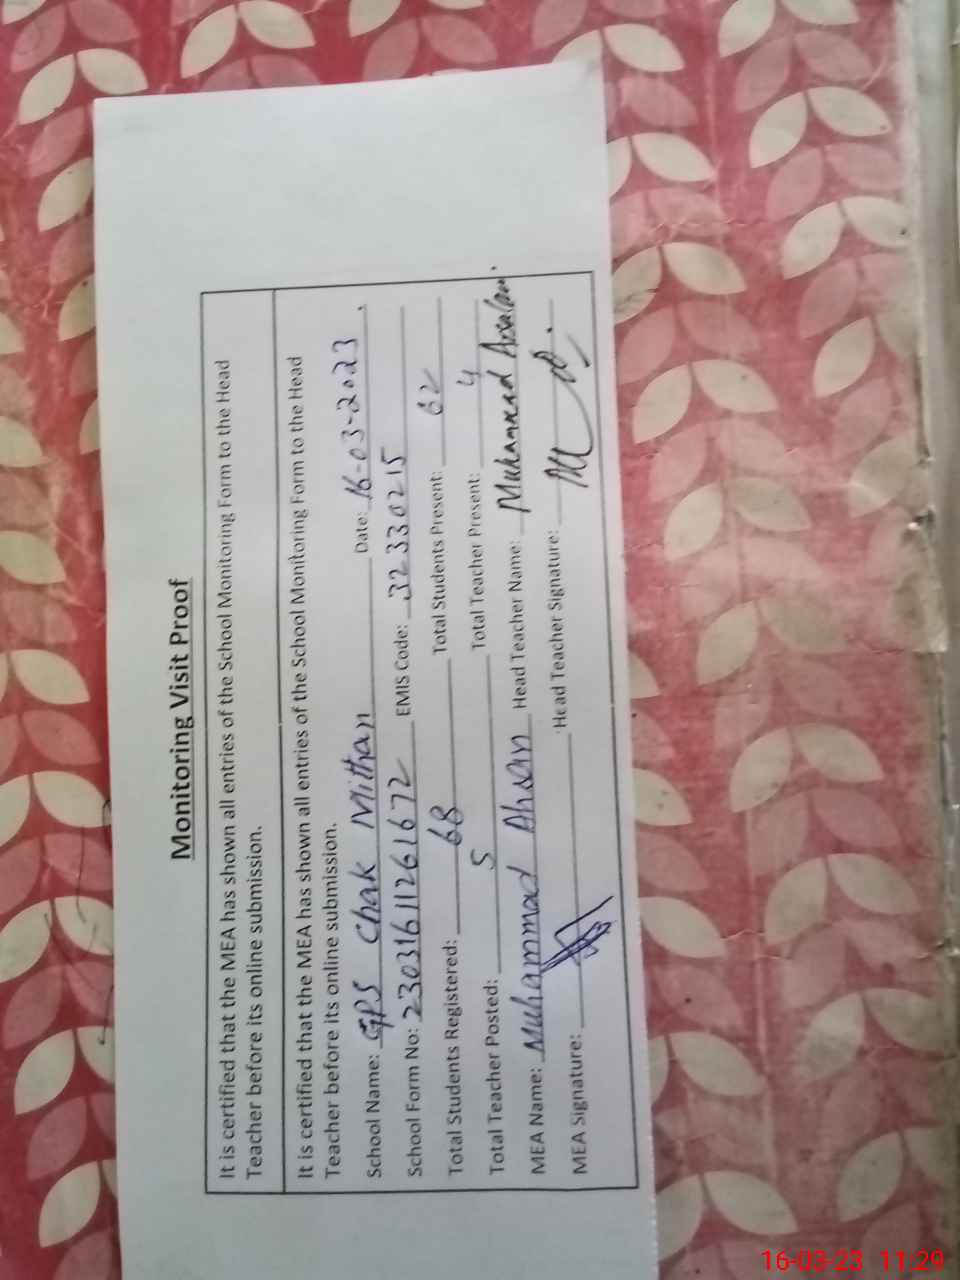 Monitoring Visit Proof
It is certified that the MEA has shown all entries of the School Monitoring Form to the Head
Teacher before its online submission.
It is certified that the MEA has shown all entries of the School Monitoring Form to the Head
Teacher before its online submission.
School Name: GPS Chak Mithan Date: 16-03-2023
School Form No: 23031611261672 EMIS Code: 32330215
Total Students Registered: 68 Total Students Present: 62
Total Teacher Posted: 5 Total Teacher Present: 4
MEA Name: Muhammad Ahsan Head Teacher Name: Muhammad Arsalan
MEA Signature: Head Teacher Signature:
16-03-23 11:29